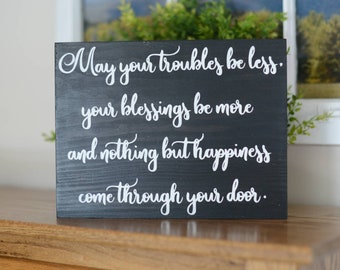 May your troubles be less.
your blessings be more
and nothing but happiness
come through your door.